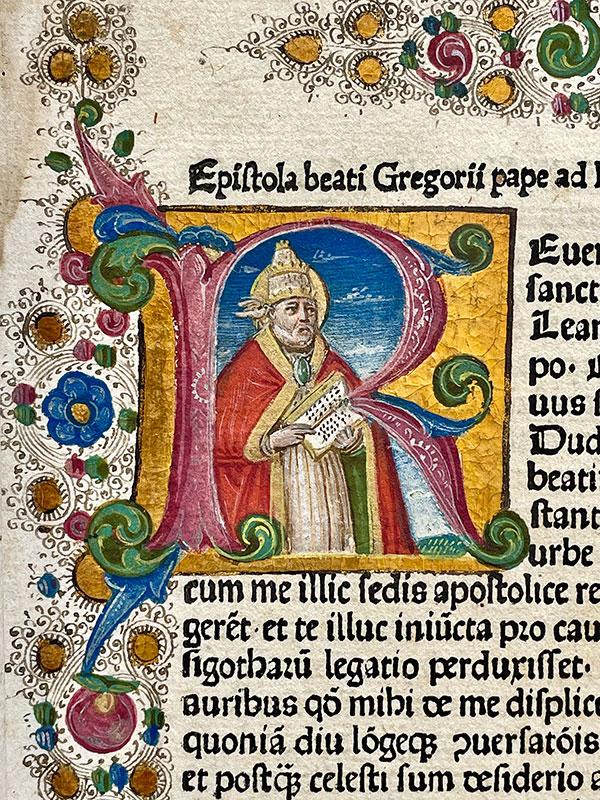 Epiſtola beati Gregorii pape ad
R
Euer
ſanct
Lean
po·
uus
Dud
beati
ſtant
urbe
cum me illic ſedis apoſtolice re
gerēt· et te illuc iniūcta pro cau
ſigotharū legatio perduxiſſet·
auribus qō mihi de me diſplice
quoniā diu lōgeqꝫ ꝯuerſatōis
et poſtqꝫ̄ celeſti ſum deſiderio a